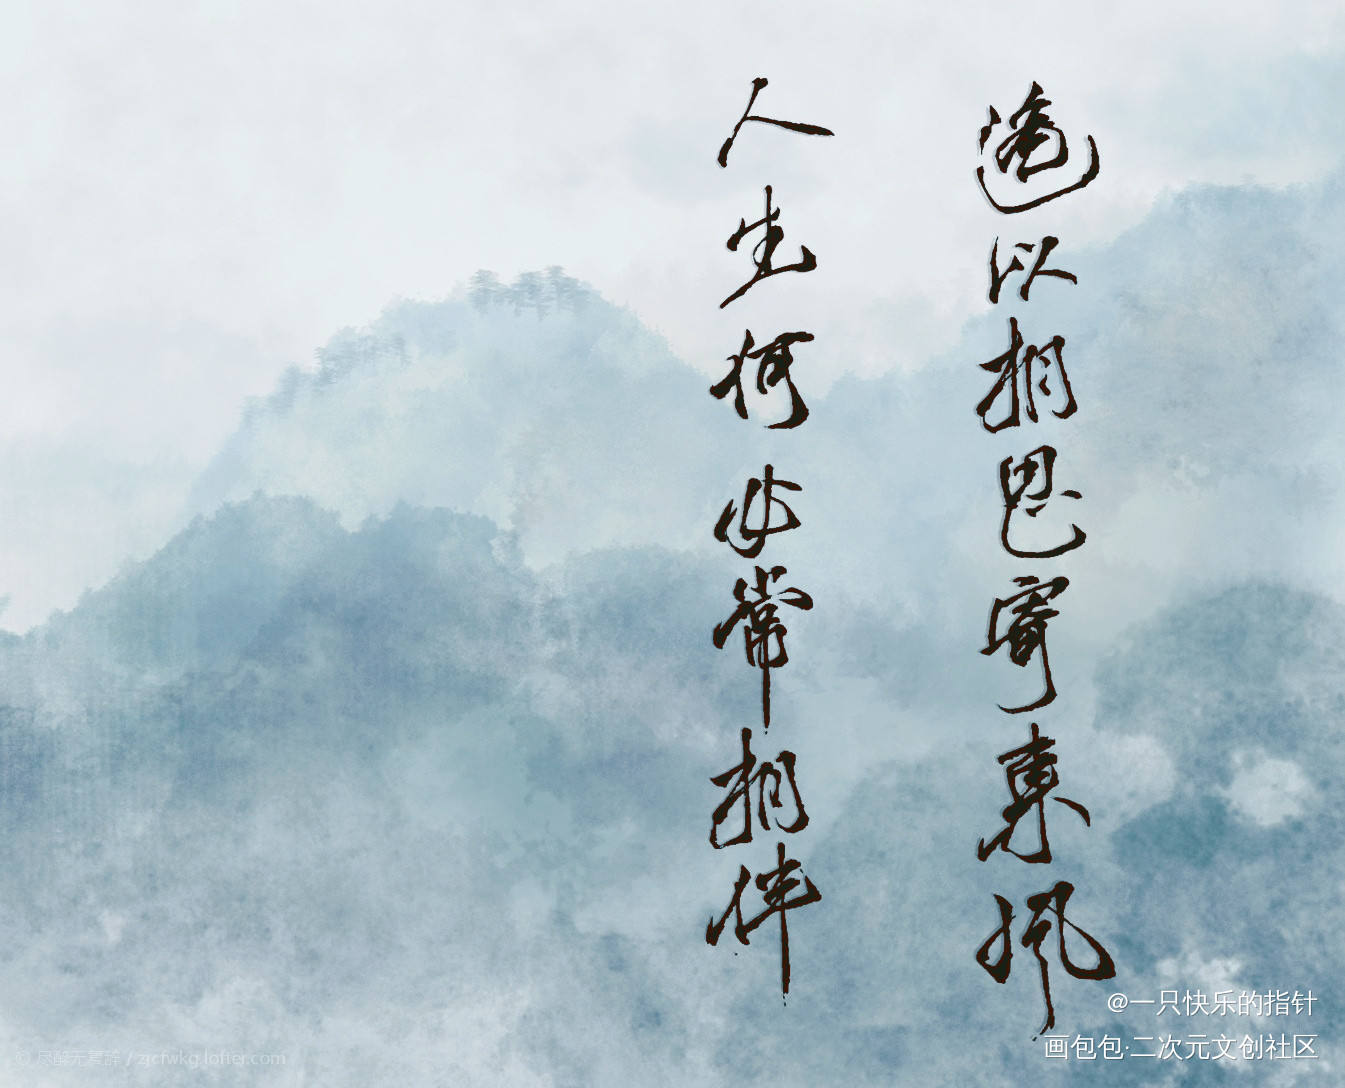 遥以相思寄東风
人生何必常相伴
@一只快乐的指针
画包包·二次元文创社区
© 尽醉无寒辞 / zjcfwkg.lofter.com